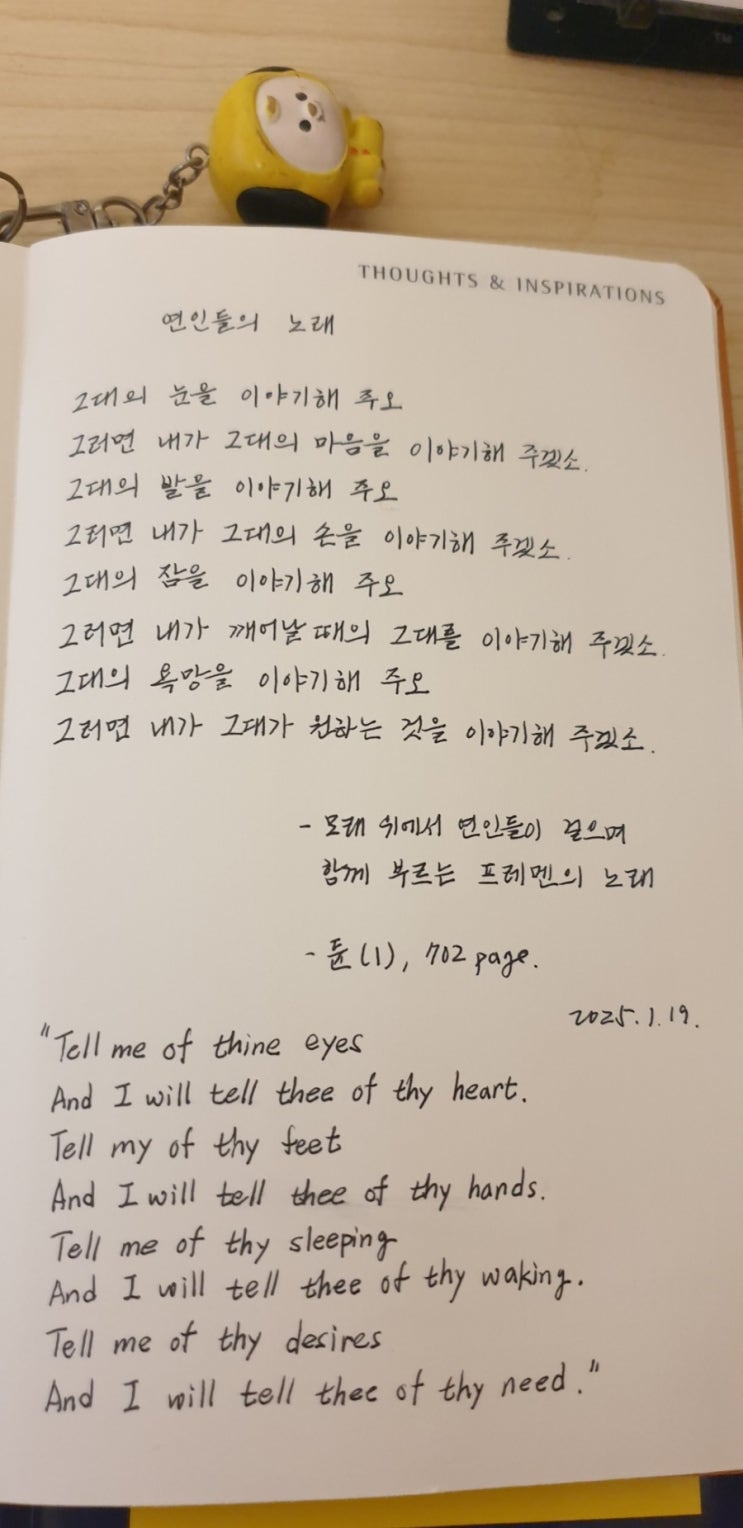 THOUGHTS & INSPIRATIONS
연인들의 노래
그대의 눈을 이야기해 주오
그러면 내가 그대의 마음을 이야기해 주겠소.
그대의 발을 이야기해 주오
그러면 내가 그대의 손을 이야기해 주겠소.
그대의 잠을 이야기해 주오
그러면 내가 깨어날 때의 그대를 이야기해 주겠소.
그대의 욕망을 이야기해 주오
그러면 내가 그대가 원하는 것을 이야기해 주겠소.
- 모래 위에서 연인들이 걸으며
함께 부르는 프레멘의 노래
- 듄(1), 702 page.
2025.1.19.
"Tell me of thine eyes
And I will tell thee of thy heart.
Tell my of thy feet
And I will tell thee of thy hands.
Tell me of thy sleeping
And I will tell thee of thy waking.
Tell me of thy desires
And I will tell thee of thy need."